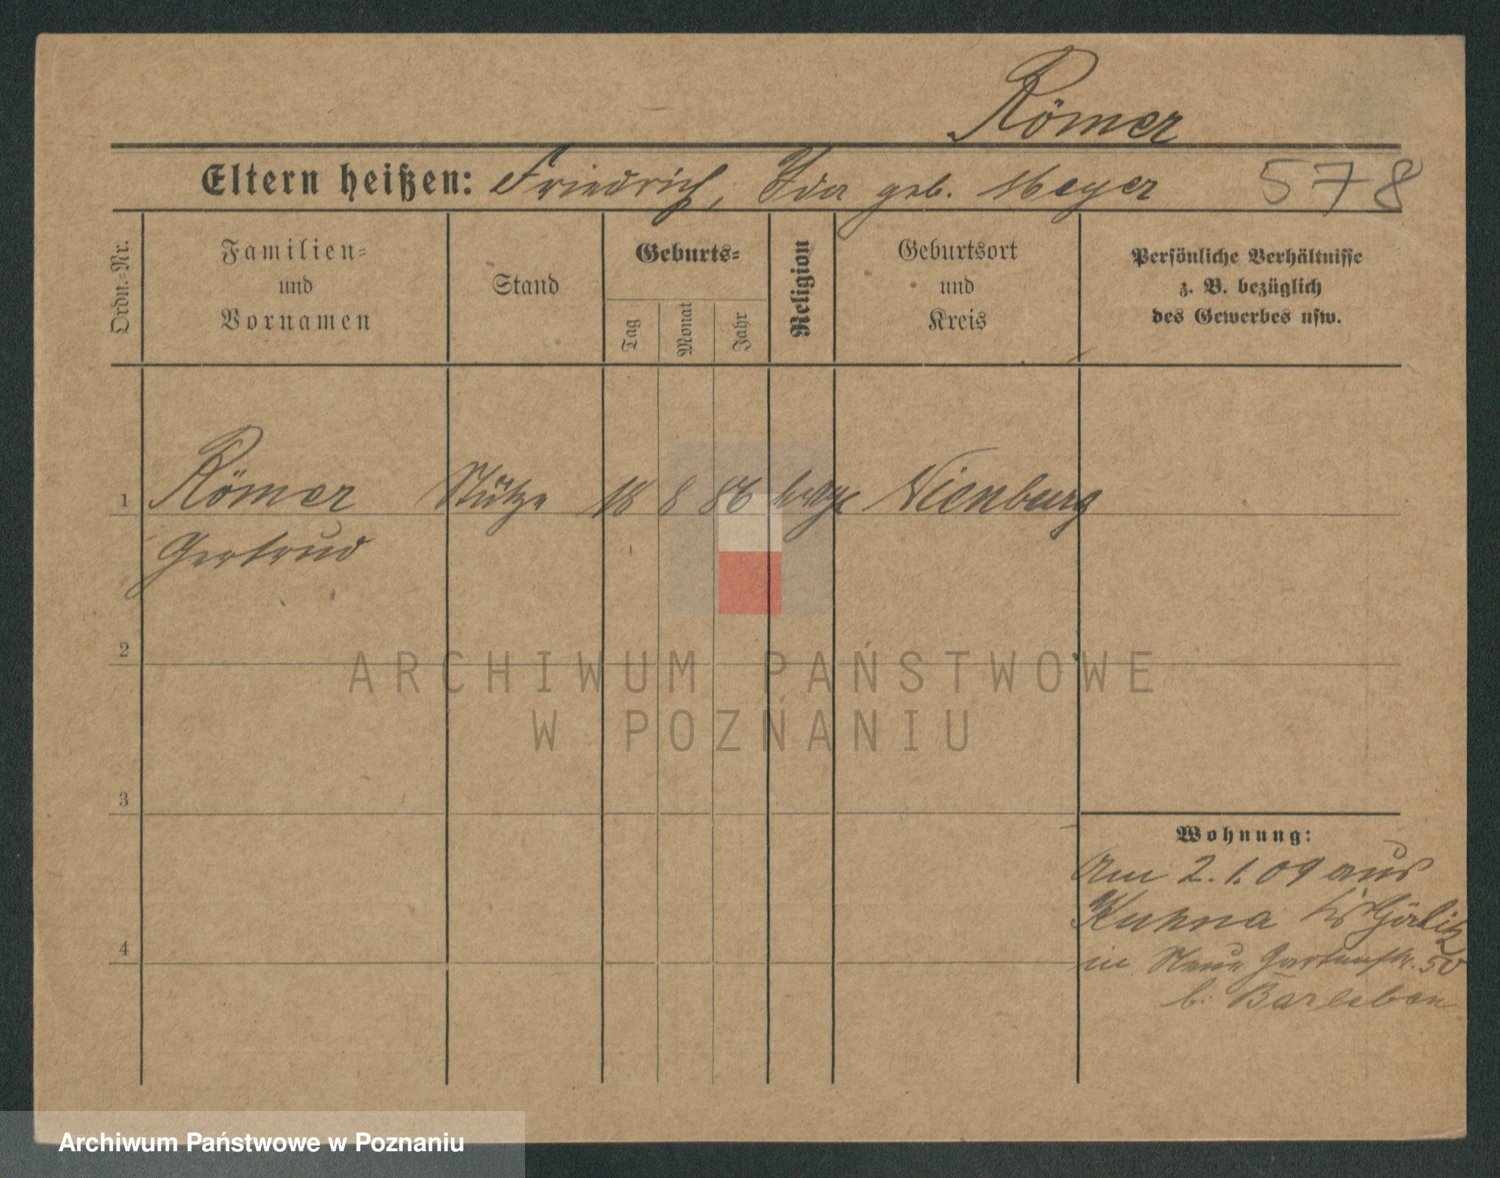 Römer
Eltern heißen: Friedrich, Ida geb. Meyer 578
Ordn.-Nr.
Familien-
und
Vornamen
Stand
Geburts-
Tag
Monat
Jahr
Religion
Geburtsort
und
Kreis
Persönliche Verhältnisse
z. B. bezüglich
des Gewerbes usw.
1 Römer Stütze 18 8 86 Nienburg
Gertrud
2
3
4
Wohnung:
Am 2.1.09 aus
Kuhna Görlitz
in Neue Gartenstr. 50
b. Barleben
ARCHIWUM PAŃSTWOWE
W POZNANIU
Archiwum Państwowe w Poznaniu